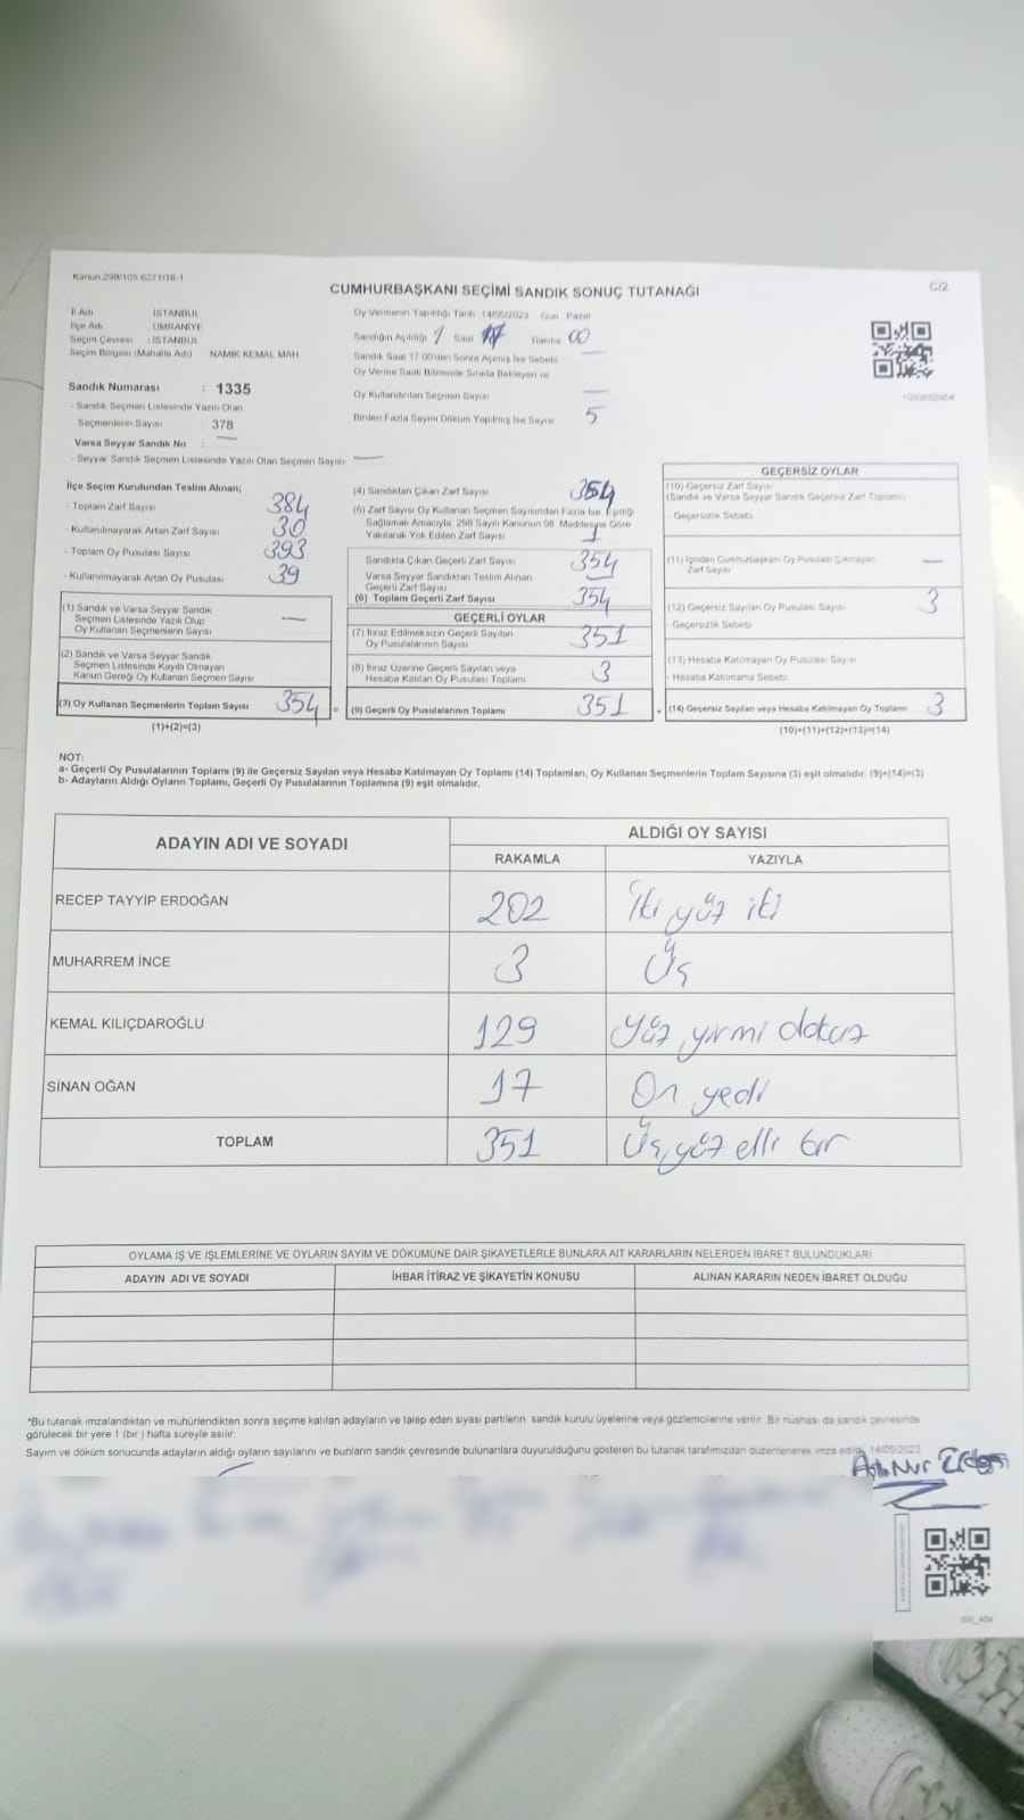 CUMHURBAŞKANI SEÇİMİ SANDIK SONUÇ TUTANAĞI
C/2
İl Adı : İSTANBUL
İlçe Adı ÜMRANİYE
Seçim Çevresi : İSTANBUL
Seçim Bölgesi (Mahalle Adı) NAMIK KEMAL MAH
Sandık Numarası : 1335
- Sandık Seçmen Listesinde Yazılı Olan
Seçmenlerin Sayısı 378
Varsa Seyyar Sandık No :
- Seyyar Sandık Seçmen Listesinde Yazılı Olan Seçmen Sayısı
Oy Vermenin Yapıldığı Tarih 14/05/2023 Gün Pazar
Sandığın Açıldığı Saat 17 00
Oy Kullandırılan Seçmen Sayısı
Birden Fazla Sayım Döküm Yapılmış İse Sayısı 5
İlçe Seçim Kurulundan Teslim Alınan;
- Toplam Zarf Sayısı 384
- Kullanılmayarak Artan Zarf Sayısı 30
- Toplam Oy Pusulası Sayısı 393
- Kullanılmayarak Artan Oy Pusulası 39
(1) Sandık ve Varsa Seyyar Sandık
Seçmen Listesinde Yazılı Olup
Oy Kullanan Seçmenlerin Sayısı —
(2) Sandık ve Varsa Seyyar Sandık
Seçmen Listesinde Kayıtlı Olmayan
Kanun Gereği Oy Kullanan Seçmen Sayısı
(3) Oy Kullanan Seçmenlerin Toplam Sayısı 354 =
(1)+(2)=(3)
(4) Sandıktan Çıkan Zarf Sayısı 354
(5) Zarf Sayısı Oy Kullanan Seçmen Sayısından Fazla İse, Eşitliği
Sağlamak Amacıyla, 298 Sayılı Kanunun 98. Maddesine Göre
Yakılarak Yok Edilen Zarf Sayısı 1
Sandıkta Çıkan Geçerli Zarf Sayısı 354
Varsa Seyyar Sandıktan Teslim Alınan
Geçerli Zarf Sayısı
(6) Toplam Geçerli Zarf Sayısı 354
GEÇERLİ OYLAR
(7) İtiraz Edilmeksizin Geçerli Sayılan
Oy Pusulalarının Sayısı 351
(8) İtiraz Üzerine Geçerli Sayılan veya
Hesaba Katılan Oy Pusulası Toplamı 3
(9) Geçerli Oy Pusulalarının Toplamı 351 +
GEÇERSİZ OYLAR
(10) Geçersiz Zarf Sayısı
(Sandık ve Varsa Seyyar Sandık Geçersiz Zarf Toplamı)
- Geçersizlik Sebebi
(11) İçinden Cumhurbaşkanı Oy Pusulası Çıkmayan
Zarf Sayısı —
(12) Geçersiz Sayılan Oy Pusulası Sayısı 3
- Geçersizlik Sebebi
(13) Hesaba Katılmayan Oy Pusulası Sayısı
- Hesaba Katılmama Sebebi
(14) Geçersiz Sayılan veya Hesaba Katılmayan Oy Toplamı 3
(10)+(11)+(12)+(13)=(14)
NOT:
a- Geçerli Oy Pusulalarının Toplamı (9) ile Geçersiz Sayılan veya Hesaba Katılmayan Oy Toplamı (14) Toplamları, Oy Kullanan Seçmenlerin Toplam Sayısına (3) eşit olmalıdır. (9)+(14)=(3)
b- Adayların Aldığı Oyların Toplamı, Geçerli Oy Pusulalarının Toplamına (9) eşit olmalıdır.
ADAYIN ADI VE SOYADI
ALDIĞI OY SAYISI
RAKAMLA YAZIYLA
RECEP TAYYİP ERDOĞAN 202 İki yüz iki
MUHARREM İNCE 3 Üç
KEMAL KILIÇDAROĞLU 129 Yüz yirmi dokuz
SİNAN OĞAN 17 On yedi
TOPLAM 351 Üç yüz elli bir
OYLAMA İŞ VE İŞLEMLERİNE VE OYLARIN SAYIM VE DÖKÜMÜNE DAİR ŞİKAYETLERLE BUNLARA AİT KARARLARIN NELERDEN İBARET BULUNDUKLARI
ADAYIN ADI VE SOYADI İHBAR İTİRAZ VE ŞİKAYETİN KONUSU ALINAN KARARIN NEDEN İBARET OLDUĞU
*Bu tutanak imzalandıktan ve mühürlendikten sonra seçime katılan adayların ve talep eden siyasi partilerin sandık kurulu üyelerine veya gözlemcilerine verilir. Bir nüshası da sandık çevresinde
görülecek bir yere 1 (bir ) hafta süreyle asılır.
Sayım ve döküm sonucunda adayların aldığı oyların sayılarını ve bunların sandık çevresinde bulunanlara duyurulduğunu gösteren bu tutanak tarafımızdan düzenlenerek imza edildi. 14/05/2023